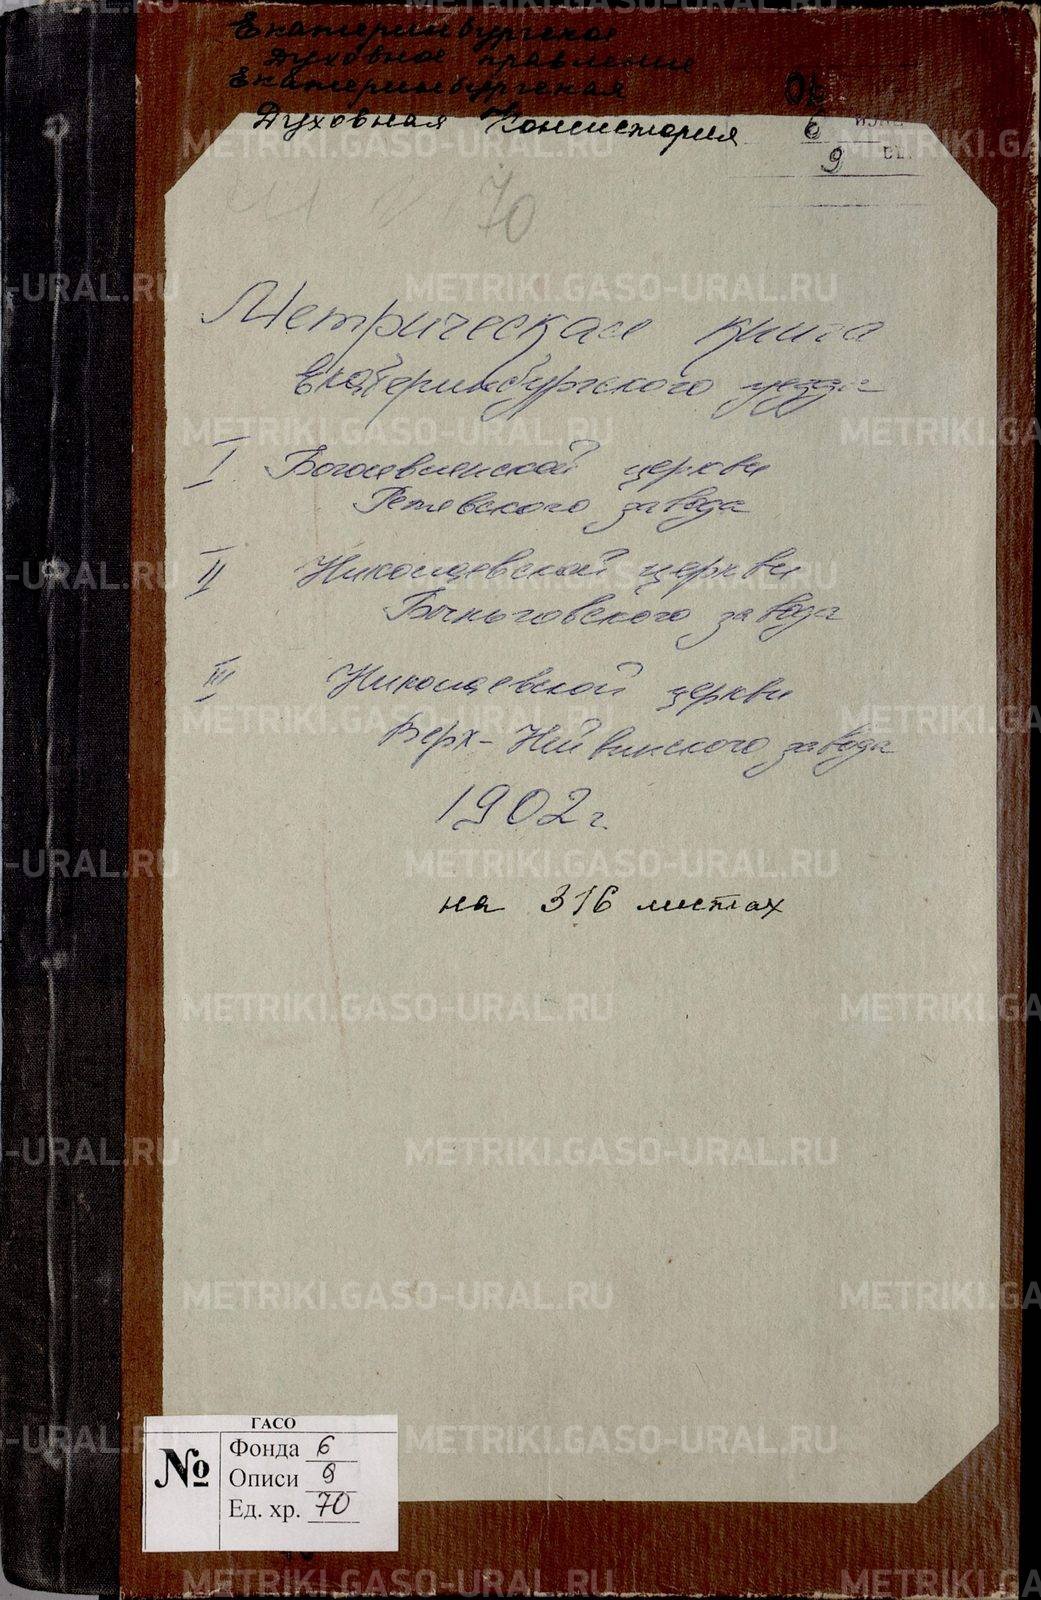 Екатеринбургское
Духовное правление
Екатеринбургская
Духовная Консистория
6
9
70
Метрическая книга
Екатеринбургского уезда
I Богоявленской церкви
Режевского завода
II Николаевской церкви
Быньговского завода
III Николаевской церкви
Верх-Нейвинского завода
1902 г.
на 316 листах
ГАСО
№
Фонда 6
Описи 9
Ед. хр. 70
METRIKI.GASO-URAL.RU